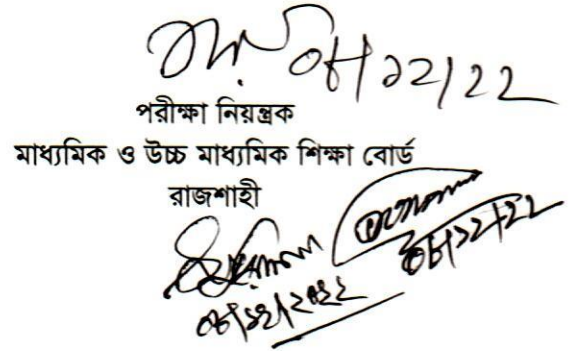 ০৮/১২/২২
পরীক্ষা নিয়ন্ত্রক
মাধ্যমিক ও উচ্চ মাধ্যমিক শিক্ষা বোর্ড
রাজশাহী
০৮/১২/২২
০৮/১২/২০২২